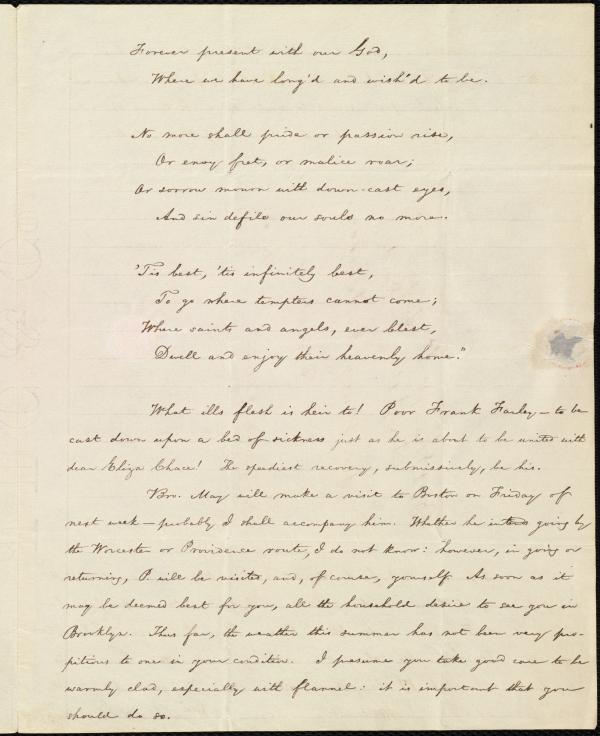 Forever present with our God,
Where we have long'd and wish'd to be.
No more shall pride or passion rise,
Or envy fret, or malice roar;
Or sorrow mourn with down-cast eyes,
And sin defile our souls no more.
'Tis best, 'tis infinitely best,
To go where tempters cannot come;
Where saints and angels, ever blest,
Dwell and enjoy their heavenly home."
What ills flesh is heir to! Poor Frank Farley — to be
cast down upon a bed of sickness just as he is about to be united with
dear Eliza Chace! The speediest recovery, submissively, be his.
Bro. May will make a visit to Boston on Friday of
next week — probably I shall accompany him. Whether he intends going by
the Worcester or Providence route, I do not know: however, in going or
returning, P. will be visited, and, of course, yourself. As soon as it
may be deemed best for you, all the household desire to see you in
Brooklyn. Thus far, the weather this summer has not been very pro-
pitious to one in your condition. I presume you take good care to be
warmly clad, especially with flannel: it is important that you
should do so.